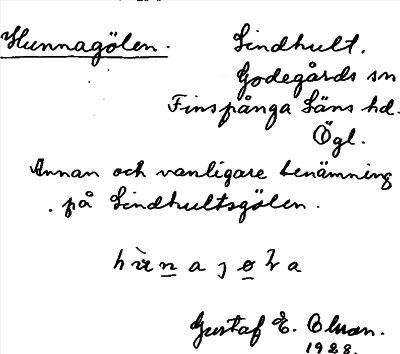 Hunnagölen.
Lindhult.
Godegårds sn
Finspånga Läns hd.
Ögl.
Annan och vanligare benämning
på Lindhultsgölen.
Gustaf E.
1928.